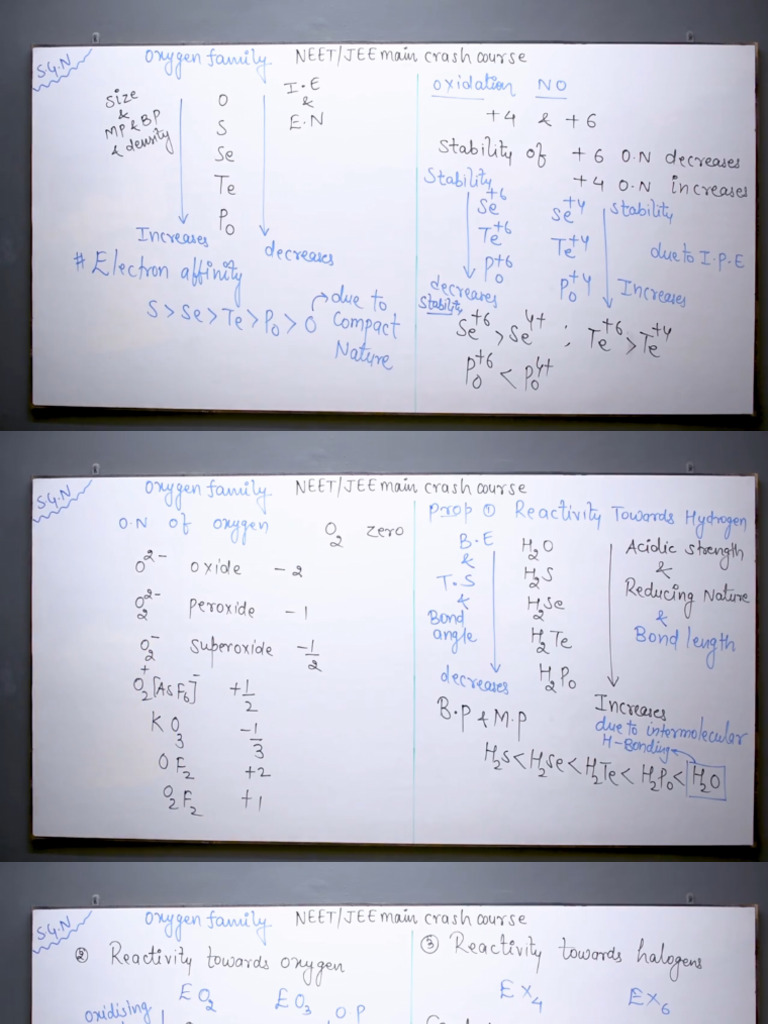 S.G.N
Oxygen family NEET/JEE main crash course
Size
&
MP & BP
& density
Increases
O
S
Se
Te
Po
I.E
&
E.N
decreases
# Electron affinity
S > Se > Te > Po > O
due to
Compact
Nature
Oxidation NO
+4 & +6
Stability of +6 O.N decreases
+4 O.N increases
Stability
Se+6
Te+6
Po+6
decreases
Se+4
Te+4
Po+4
Stability
due to I.P.E
Increases
Stability
Se+6 > Se4+ ; Te+6 > Te+4
Po+6 < Po4+
S.G.N
Oxygen family NEET/JEE main crash course
O.N of oxygen O2 zero
O2- oxide -2
O2 2- peroxide -1
O2- superoxide -1/2
O2+[AsF6]- +1/2
KO3 -1/3
OF2 +2
O2F2 +1
Prop ① Reactivity Towards Hydrogen
B.E
&
T.S
&
Bond
angle
decreases
H2O
H2S
H2Se
H2Te
H2Po
Acidic strength
&
Reducing Nature
&
Bond length
Increases
B.P & M.P
due to intermolecular
H-Bonding
H2S < H2Se < H2Te < H2Po < H2O
S.G.N
Oxygen family NEET/JEE main crash course
② Reactivity towards oxygen
EO2 EO3
oxidising
O P
③ Reactivity towards halogens
EX4 EX6